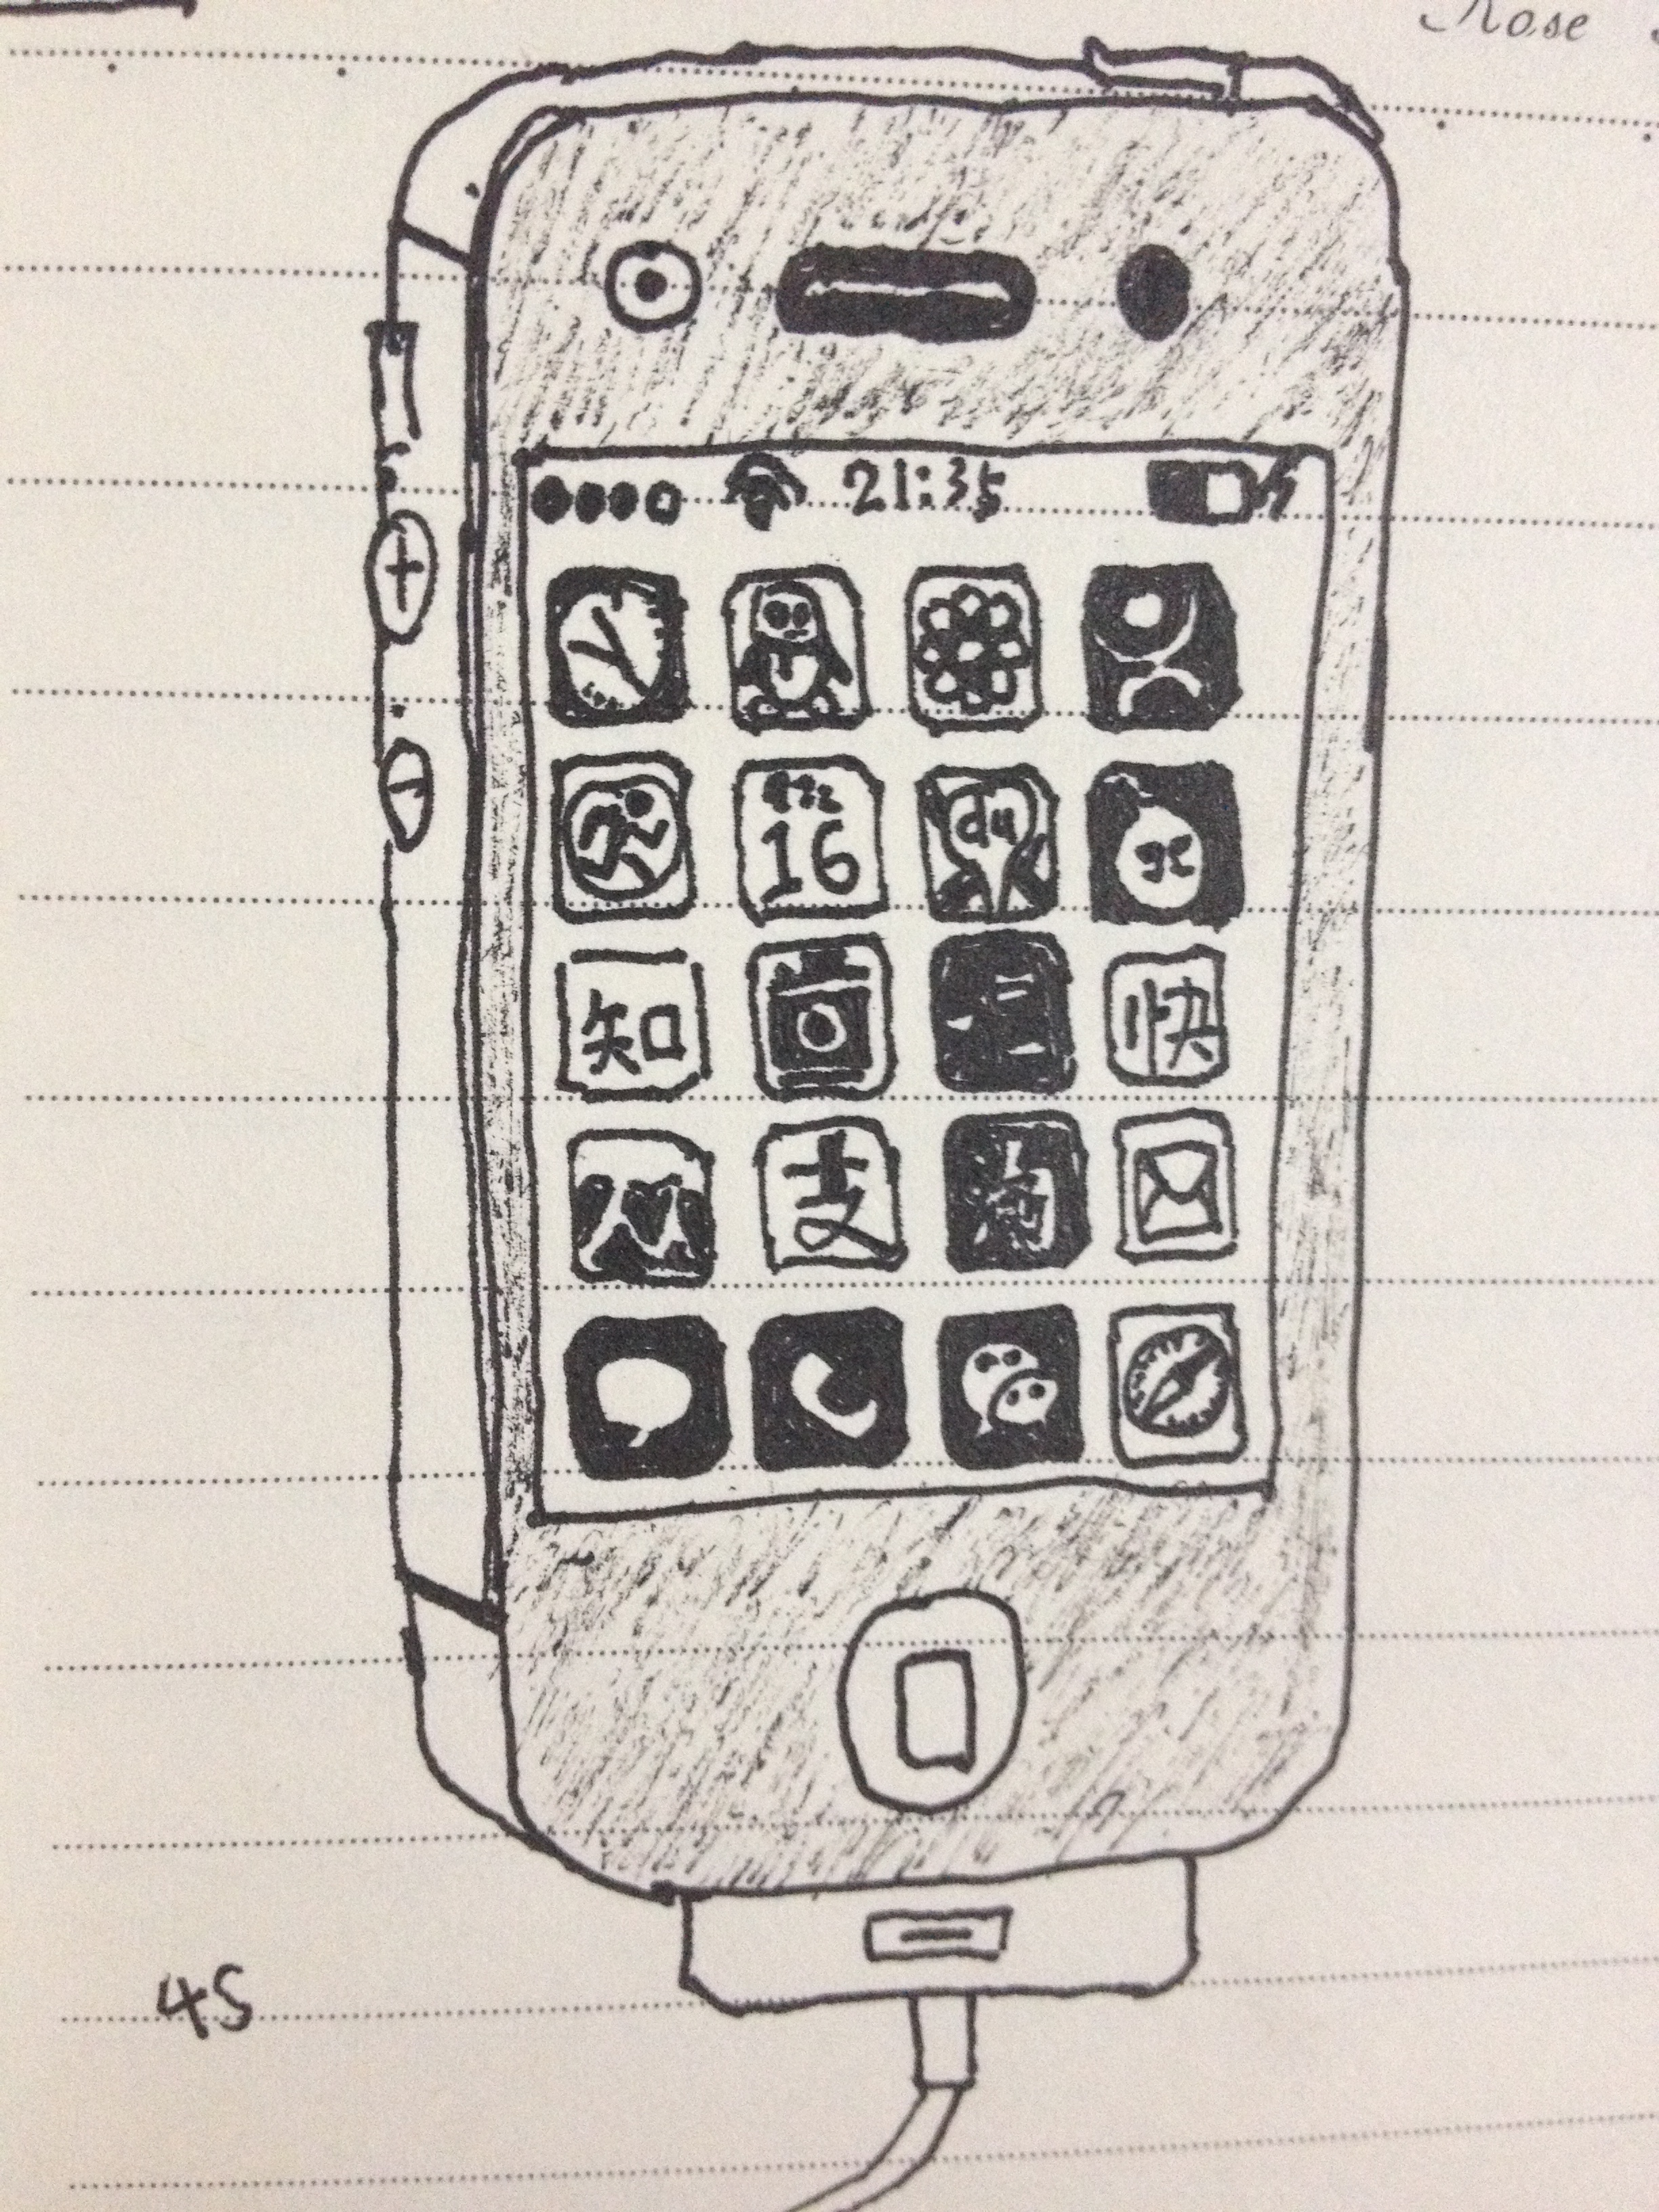 Rose
21:35
16
du
知
快
支
淘
4S